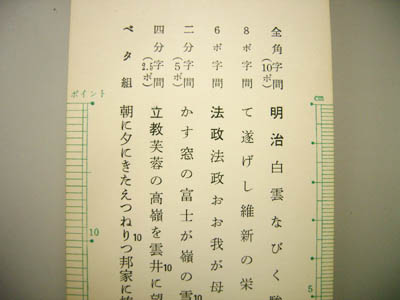 cm
5
全角字間(10ポ) 明治白雲なびく
8ポ字間 て遂げし維新の栄
6ポ字間 法政法政おお我が母
二分字間(5ポ) かす窓の富士が嶺の雪10
四分字間(2.5ポ) 立教芙蓉の高嶺を雲井に望10
ベタ組 朝に夕にきたえつねりつ邦家に
ポイント
10